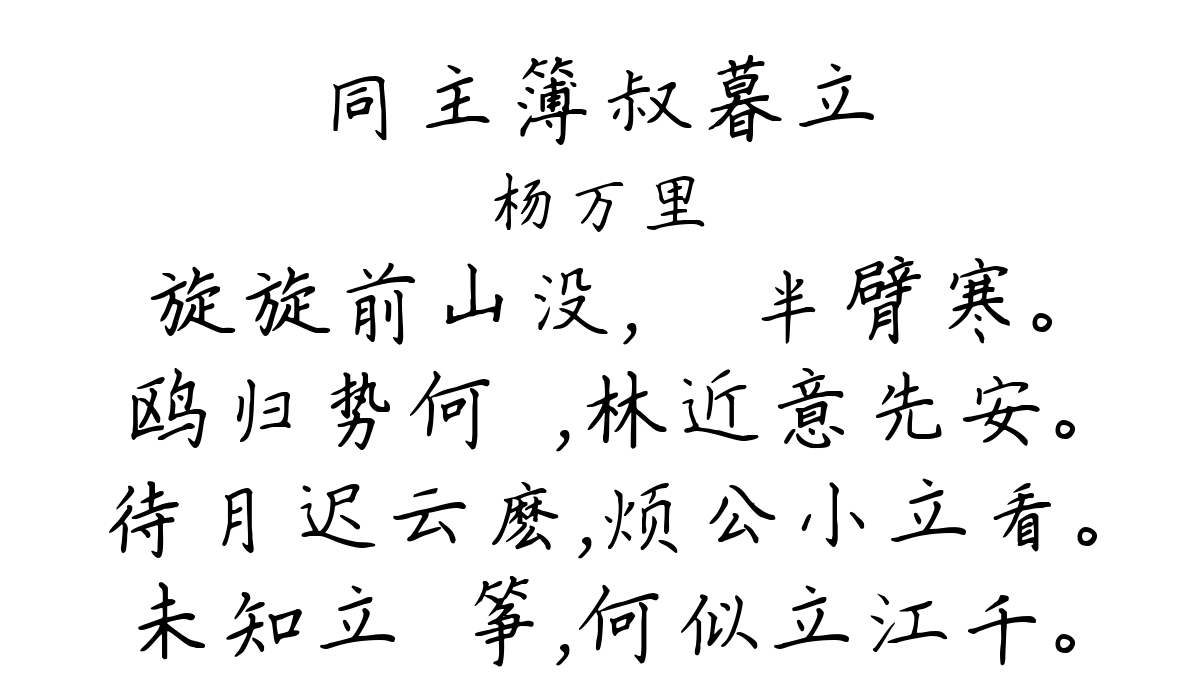 同主簿叔暮立
杨万里
旋旋前山没， 半臂寒。
鸥归势何 ,林近意先安。
待月迟云麽,烦公小立看。
未知立 筝,何似立江千。